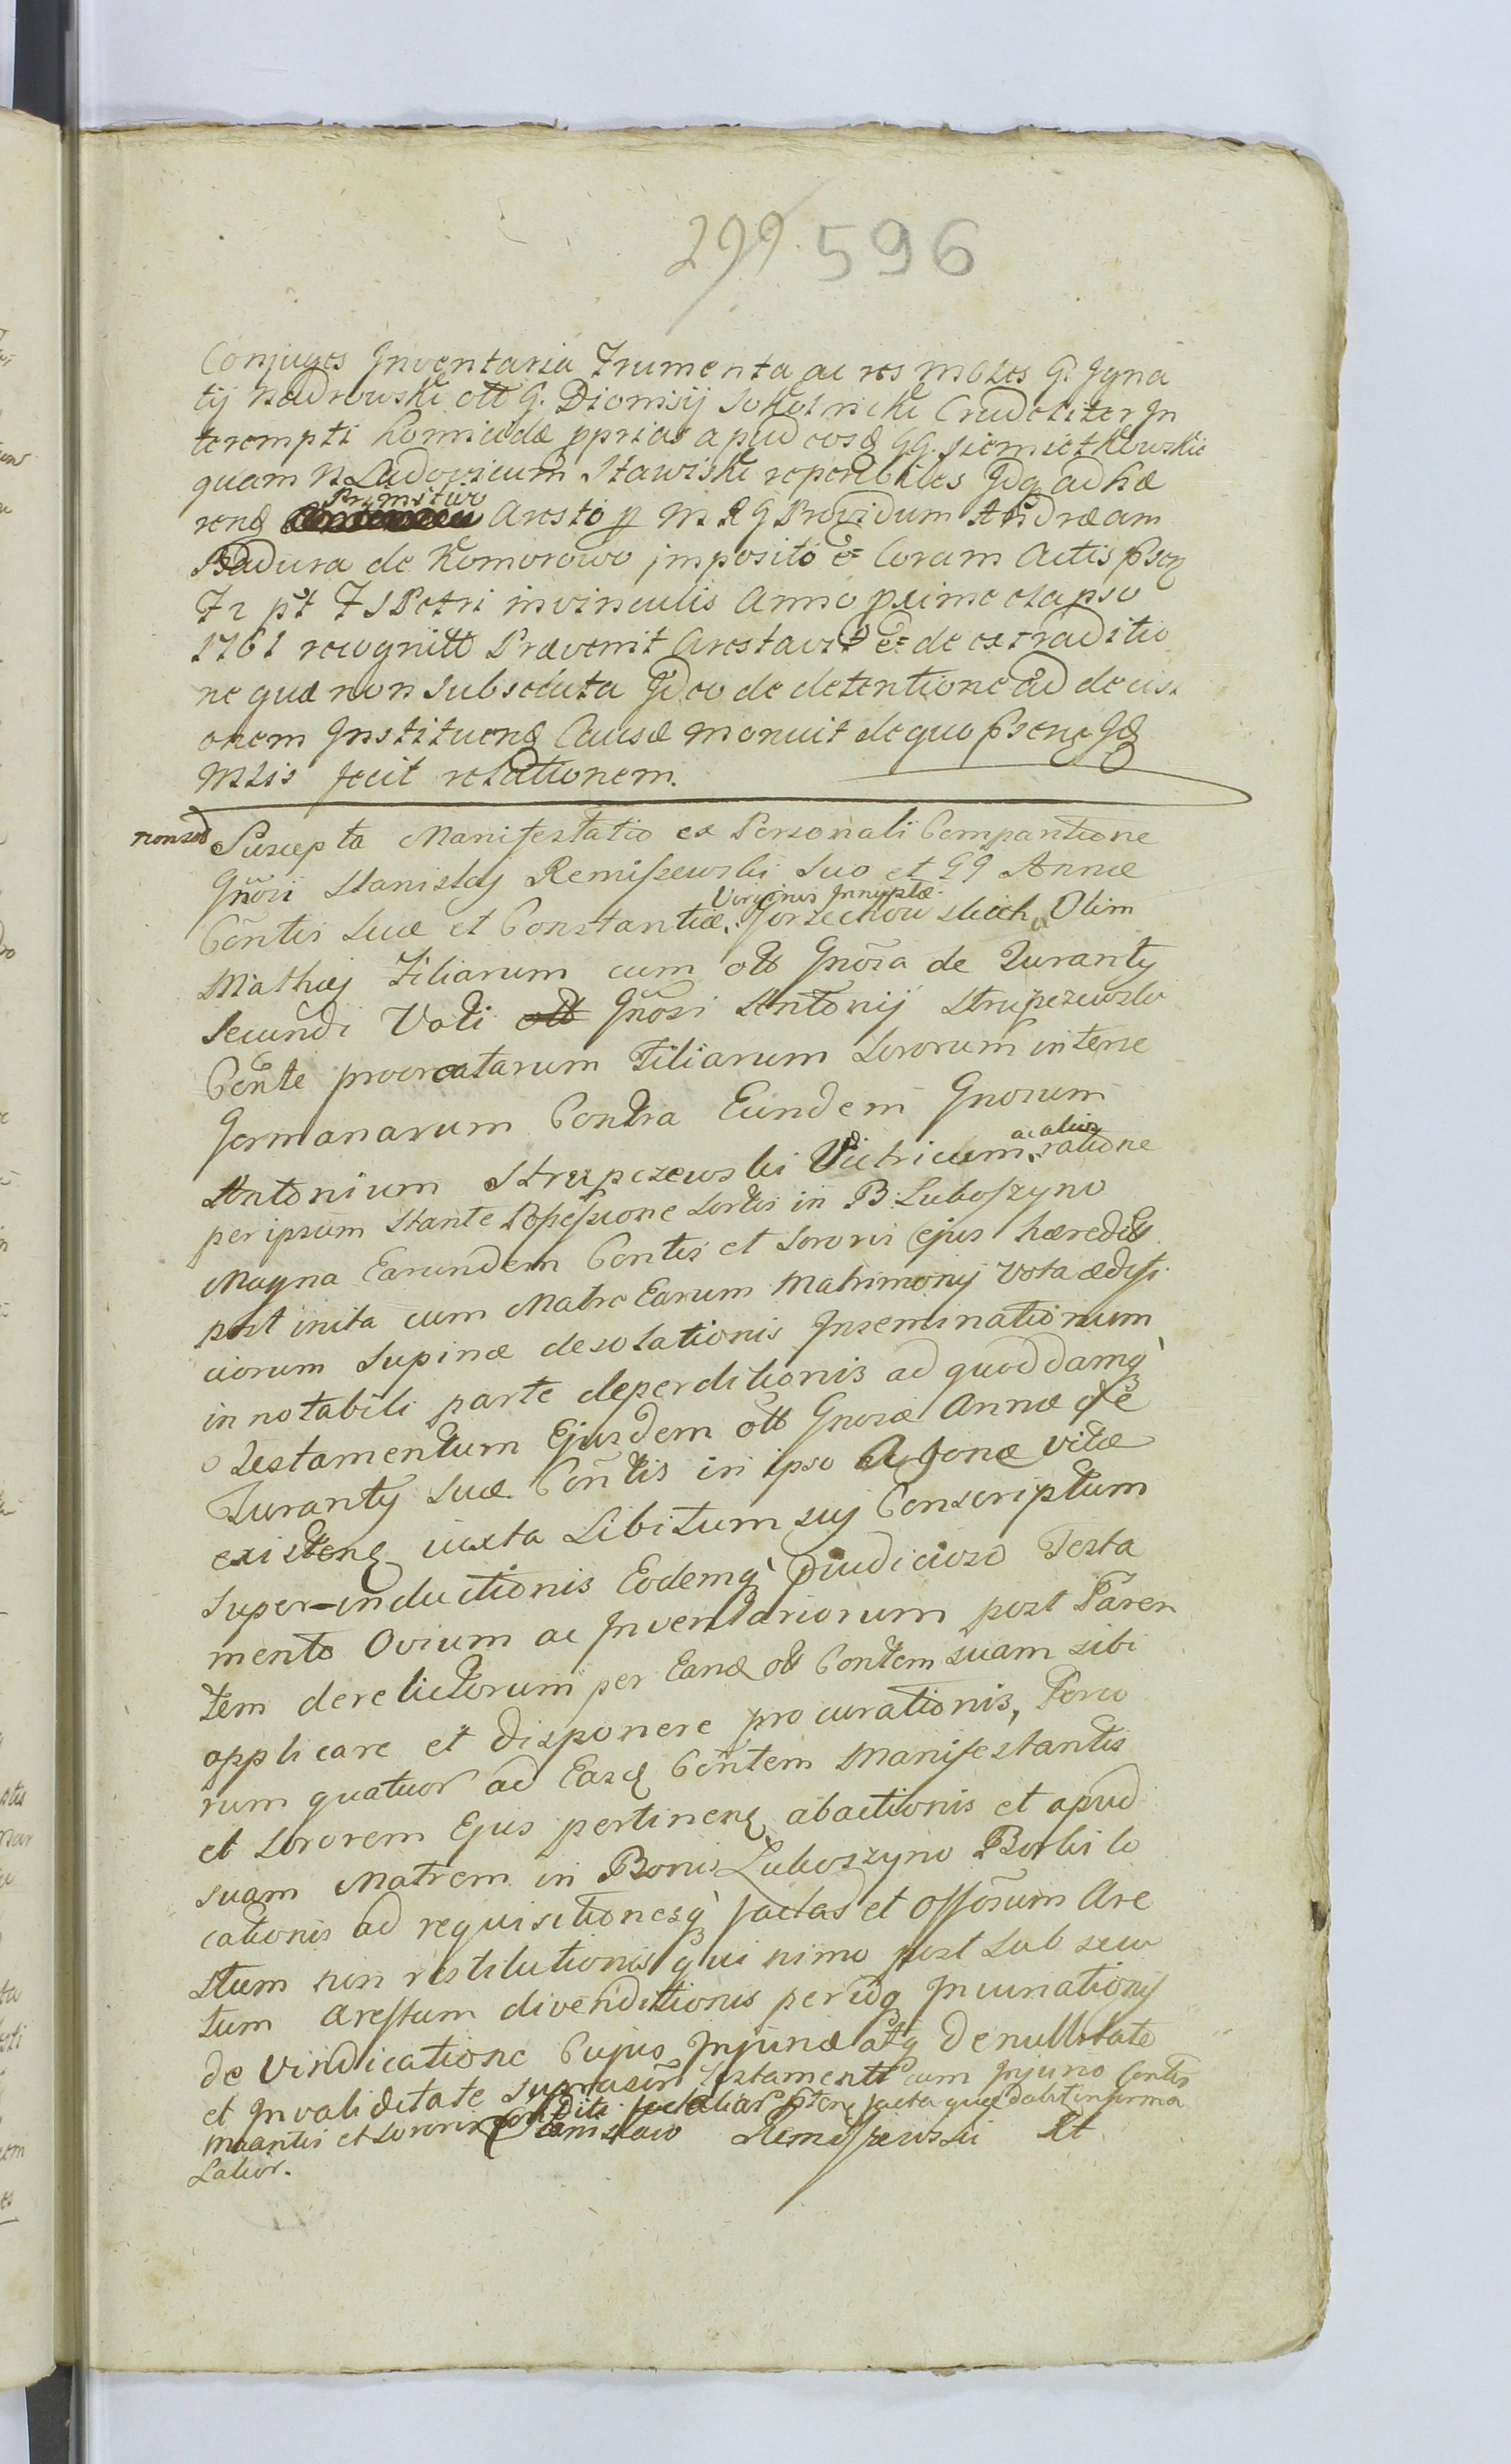 299. 596
Conjuges Inventaria Frumenta ac res mbles G. Igna
tij Nadrowski ott G. Dionisij Sokolnicki Crudeliter In
terempti homicidæ pprias apud eosd GG. Siemietkowskie
quam N Ludovicum Stawiski reperibiles Idq adhæ
rend Primitivo Aresto p M R G Providum Andræam
Badura de Komorowo imposito & Coram Actis
Fr pt F S Petri in vinculis Anno pximo elapso
1761 recognitt Prævenit Arestavit & de extraditio
ne quæ non subsecuta Ideo de detentione ad decisi
onem Instituend Causæ monuit de quo
Mtis fecit relationem.
Suscepta Manifestatio ex Personali Compantione
Gnosi Stanislaj Remiszewski Suo et GG Annæ
Contis Suæ et Constantiæ Virginis Innuptæ Olim
Mathæj Filiarum cum ott Gnosa de Turanty
Secundi Voti ott Gnosi Antonij Strupczewski
Conte procreatarum Filiarum Sororum interse
Germanarum Contra Eundem Gnosum
Antonium Strupczewski Vitricum ac alias ratione
per ipsum Stante Possessione Sortis in B. Luboszyno
Magna Earundem Contis et Sororis ejus hæredit
post inita cum Matre Earum Matrimonij Vota ædifi
ciorum Supinæ desolationis Inseminationum
in notabili parte deperditionis ad quoddamq
Testamentum Ejusdem ott Gnosæ Annæ de
Turanty Suæ Contis in ipso Agonæ vitæ
existend iuxta Libitum suj Conscriptum
Super-inductionis Eodemq Testa
mento Ovium ac Inventariorum post Paren
tem derelictorum per Eand ott Contem suam sibi
applicare et disponere procurationis, Porco
rum quatuor ad Easd Contem Manifestantis
et Sororem Ejus pertinend abactionis et apud
suam Matrem in Bonis Luboszyno Borki lo
cationis ad requisitionesq factas et Offosum Are
stum non restitutionis quinimo post Subsecu
tum Arestum divenditionis per idq
de Vindicatione Cujus Injuriæ atq de nullitate
et Invaliditate Testamenti cum Contis
Mantis et Sororis Stanislaw Remiszewski
Latior.